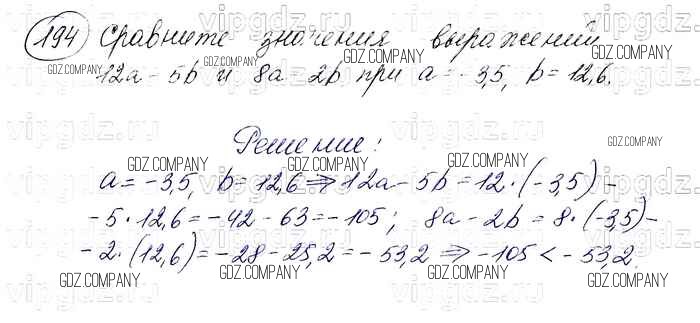 194 Сравните значения выражений
12a - 5b и 8a - 2b при a = -3,5, b = 12,6.
Решение:
a = -3,5, b = 12,6 ⇒ 12a - 5b = 12 · (-3,5) -
- 5 · 12,6 = -42 - 63 = -105; 8a - 2b = 8 · (-3,5) -
- 2 · (12,6) = -28 - 25,2 = -53,2 ⇒ -105 < -53,2.